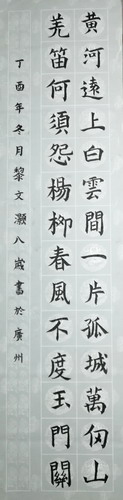 黃河遠上白雲間一片孤城萬仞山
羌笛何須怨楊柳春風不度玉門關
丁酉年冬月黎文灝八歲書於廣州